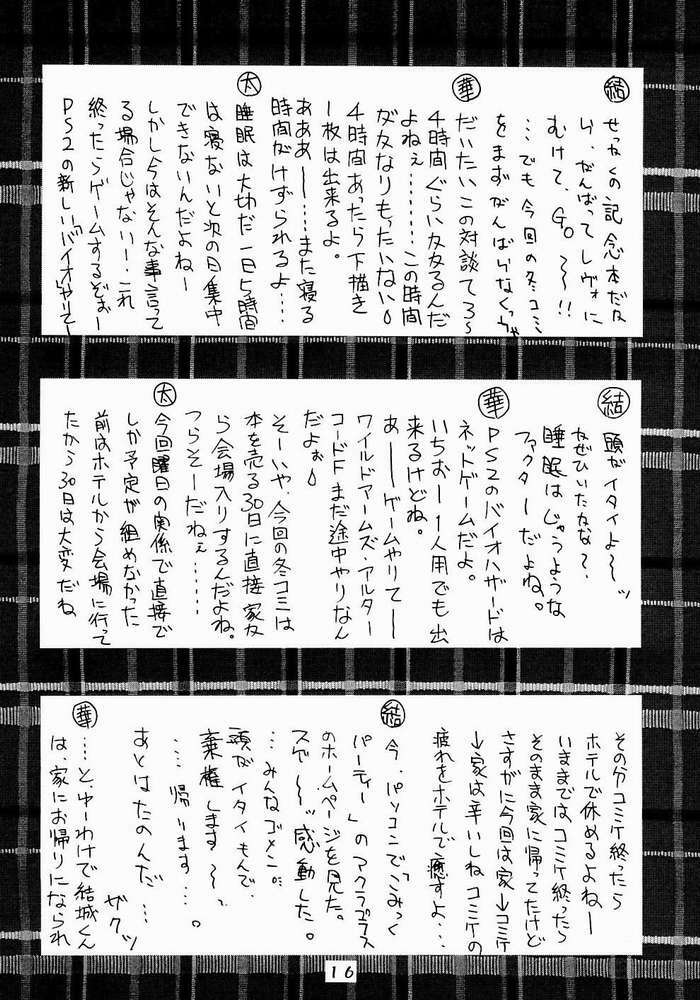 結
せっかくの記念本だな
し、がんばってレヴォに
むけて、Go〜〜!!
…でも今回の冬コミ
をまずがんばらなくっちゃ
華
だいたいこの対談て3〜
4時間ぐらい
よねぇ……この時間
がかなりもったいない
4時間あったら下描き
1枚は出来るよ。
あああーー……また寝る
時間がけずられるよ……
太
睡眠は大切だ一日5時間
は寝ないと次の日集中
できないんだよねー
しかし今はそんな事言って
る場合じゃないー!これ
終ったらゲームするぞぉー
PS2の新しい「バイオ」やりてー
結
頭がイタイよ〜〜ッ
なぜひいたかな?、
睡眠はじゅうような
ファクターだよね。
華
PS2のバイオハザードは
ネットゲームだよ。
いちおーー1人用でも出
来るけどね。
あーーゲームやりてーー
ワイルドアームズ・アルター
コードFまだ途中やりなん
だよぉ
そーいや、今回の冬コミは
本を売る30日に直接家
ら会場入りするんだよね。
つらそーだねぇ……
太
今回曜日の関係で直接で
しか予定が組めなかった
前はホテルから会場に行って
たから30日は大変だね
その分コミケ終ったら
ホテルで休めるよねー
いままではコミケ終ったら
そのまま家に帰ってたけど
さすがに今回は家→コミケ
→家は辛いしねコミケの
疲れをホテルで癒すよ…
結
今、パソコンで「こみっく
パーティー」のアクアプラス
のホームページを見た。
スゲ〜〜ッ感動した。
…みんなゴメン。
頭がイタイもんで
棄権します〜〜。
…帰ります…。
あとはたのんだ…
ザクッ
華
…と、ゆーわけで結城くん
は、家にお帰りになられ
16